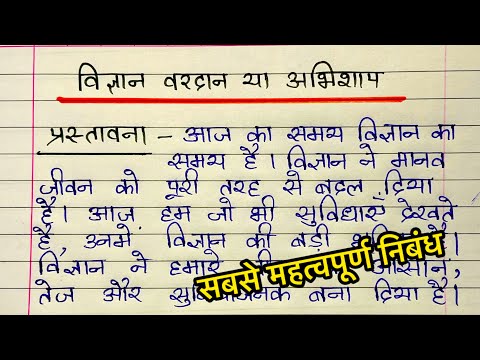 विज्ञान वरदान या अभिशाप
प्रस्तावना – आज का समय विज्ञान का
समय है। विज्ञान ने मानव
जीवन को पूरी तरह से बदल दिया
है। आज हम जो भी सुविधाएँ देखते
है, उनमें विज्ञान की बड़ी है।
विज्ञान ने हमारे आसान,
तेज और सुविधाजनक बना दिया है।
सबसे महत्वपूर्ण निबंध